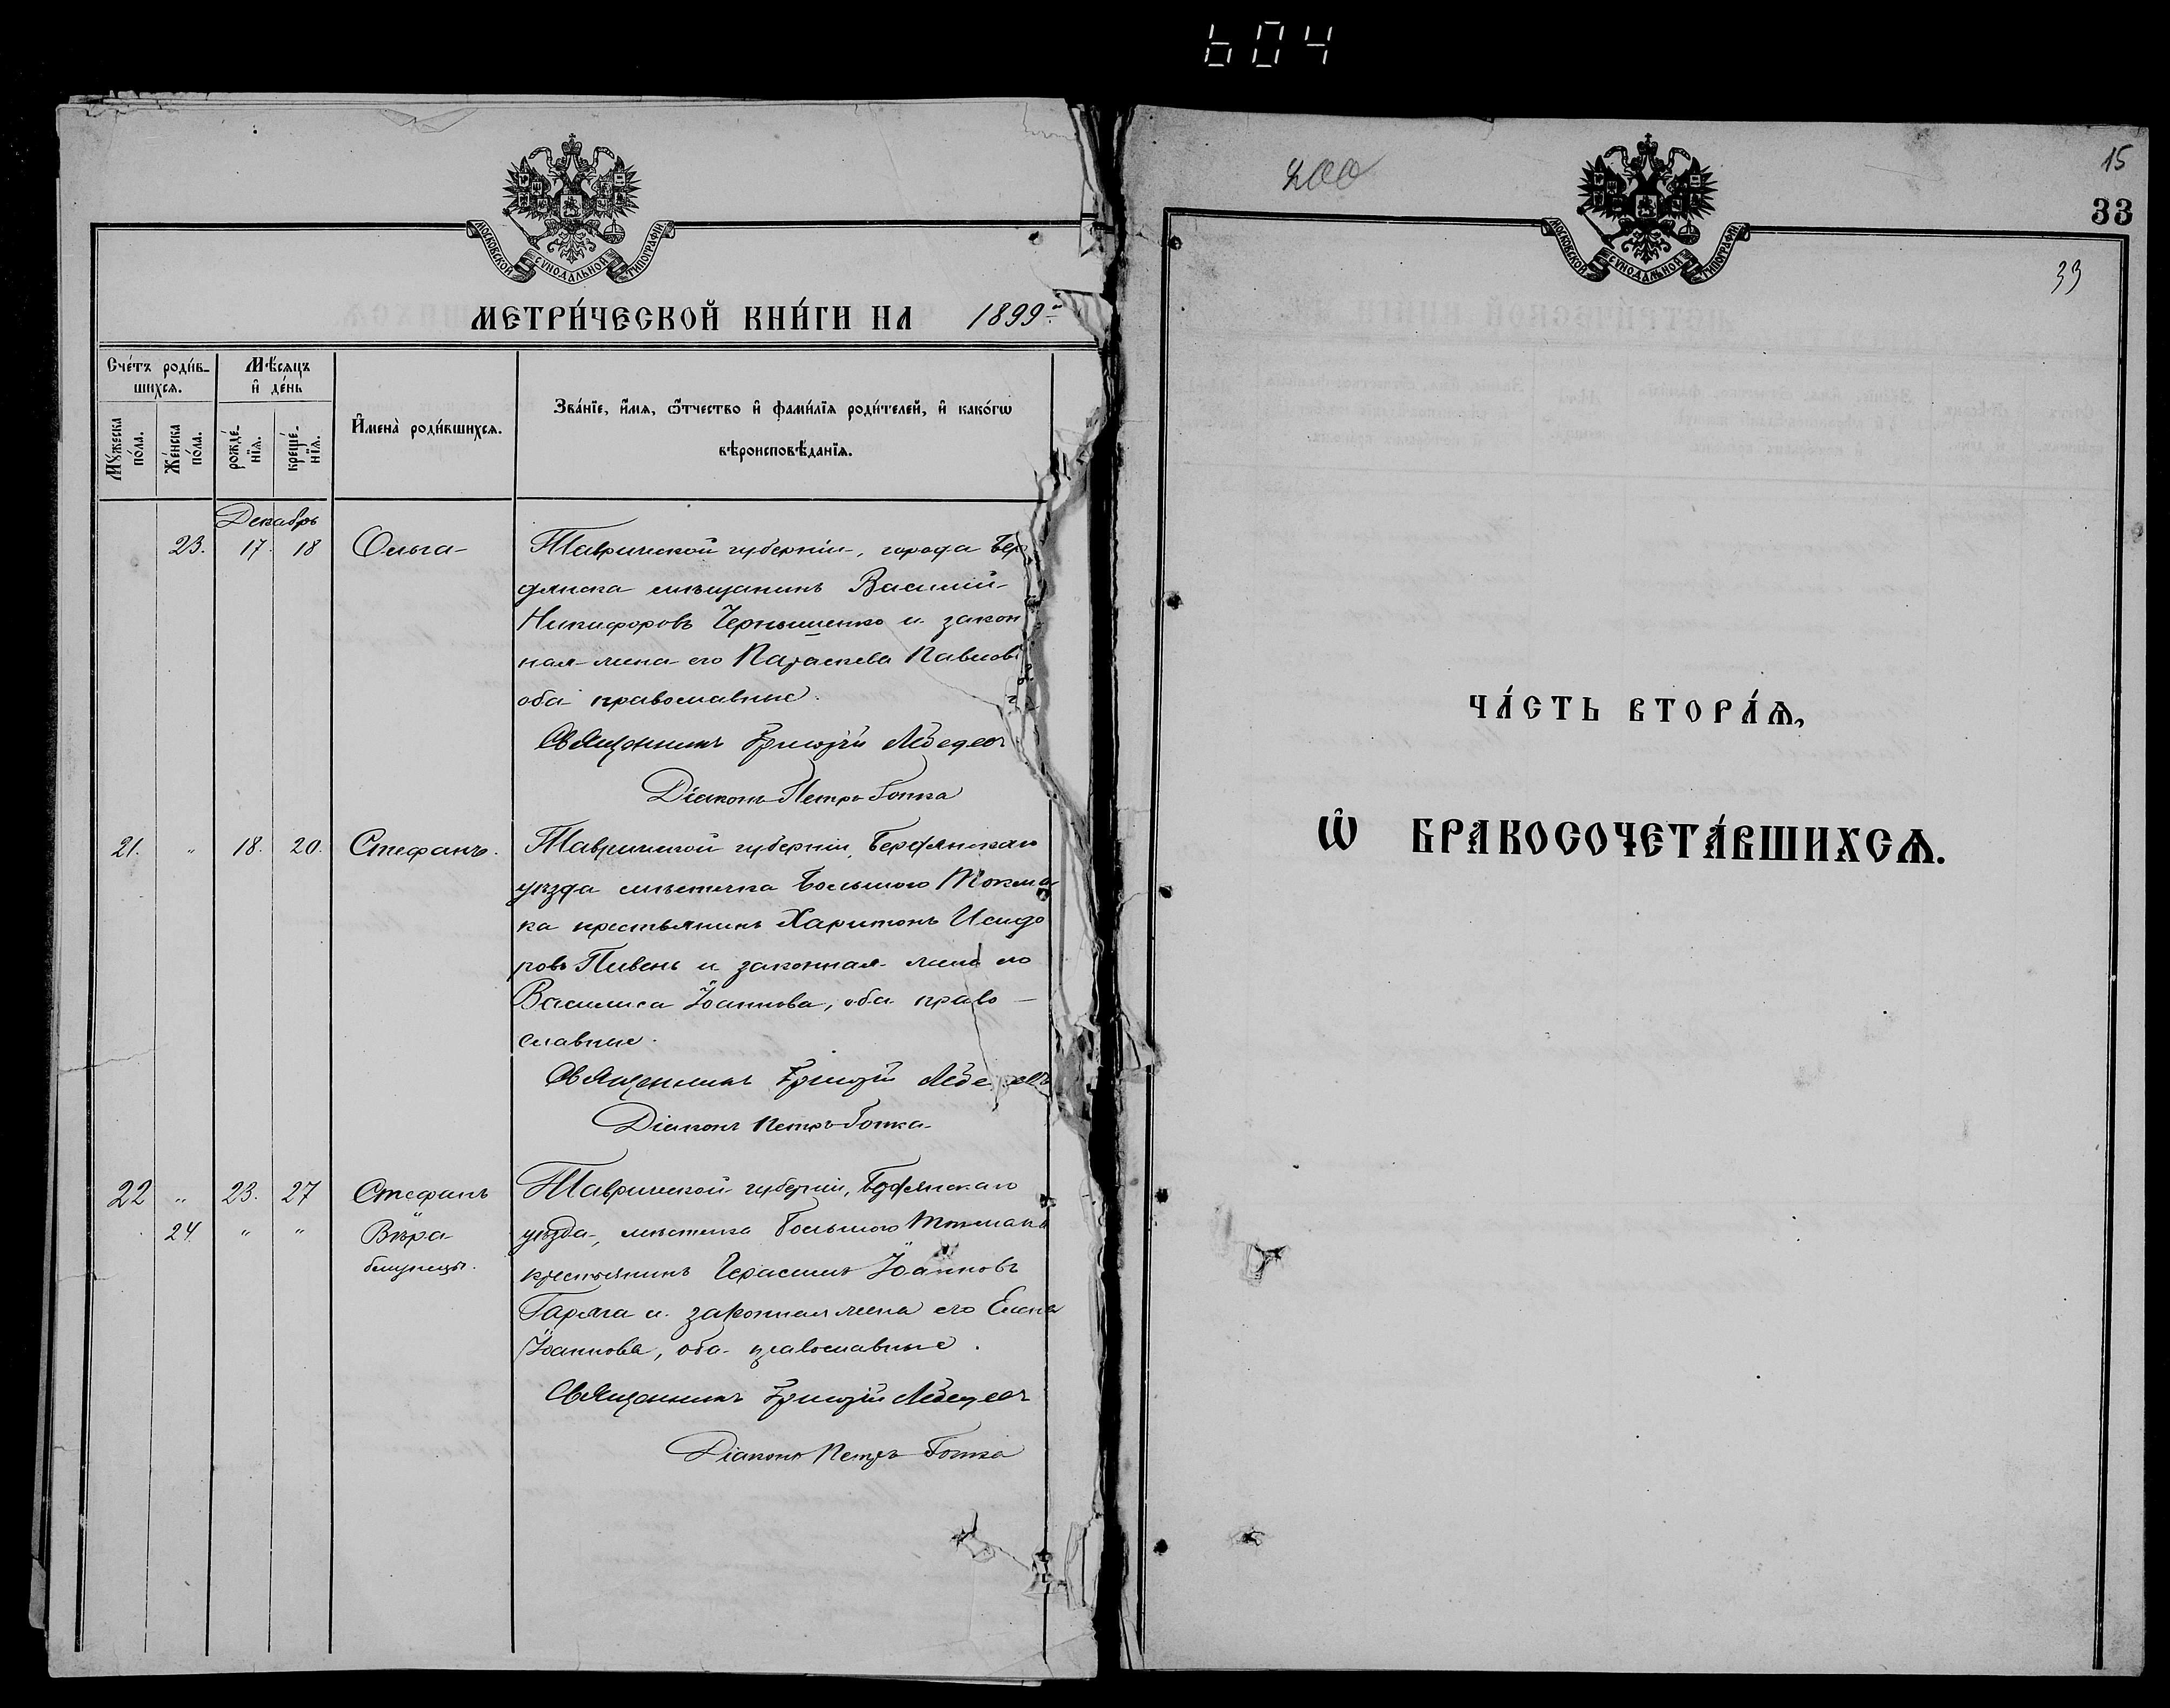 604
МОСКОВСКОЙ СѴНОДАЛЬНОЙ ТИПОГРАФІИ
МЕТРИ́ЧЕСКОЙ КНИ́ГИ НА 1899 г.
Сче́тъ роди́в-
шихся.
Мѣ́сяцъ
и҆ де́нь
Мꙋ́жеска
по́ла.
Же́нска
по́ла.
рожде́-
нїѧ.
креще́-
нїѧ.
И҆мена̀ роди́вшихсѧ.
Зва́нїе, и҆́мѧ, ѻ҆́тчество и҆ фами́лїѧ роди́телей, и҆ како́гѡ
вѣроисповѣ́данїѧ.
Декабрь
23. 17. 18 Ольга
Таврической губерніи, города Бер
дянска мѣщанинъ Василій
Никифоровъ Чернышенко и закон
ная жена его Параскева Павлов
оба православные.
Священникъ Григорій Лебедевъ
Діаконъ Петръ Гопка
21. " 18. 20. Стефанъ.
Таврической губерніи, Бердянскаго
уѣзда мѣстечка Большого Токма
ка крестьянинъ Харитонъ Исидо
ровъ Пивень и законная жена его
Василиса Іоаннова, оба право-
славные.
Священникъ Григорій Лебедевъ
Діаконъ Петръ Гопка
22 " 23. 27 Стефанъ
24. " " Вѣра
близнецы.
Таврической губерніи, Бердянскаго
уѣзда, мѣстечка Большого Токмака
крестьянинъ Герасимъ Іоанновъ
Гаряга и законная жена его Елена
Іоаннова, оба православные.
Священникъ Григорій Лебедевъ
Діаконъ Петръ Гопка
200
15
33
33
МОСКОВСКОЙ СѴНОДАЛЬНОЙ ТИПОГРАФІИ
ЧА́СТЬ ВТОРА́Ѧ,
Ѽ БРАКОСОЧЕТА́ВШИХСѦ.